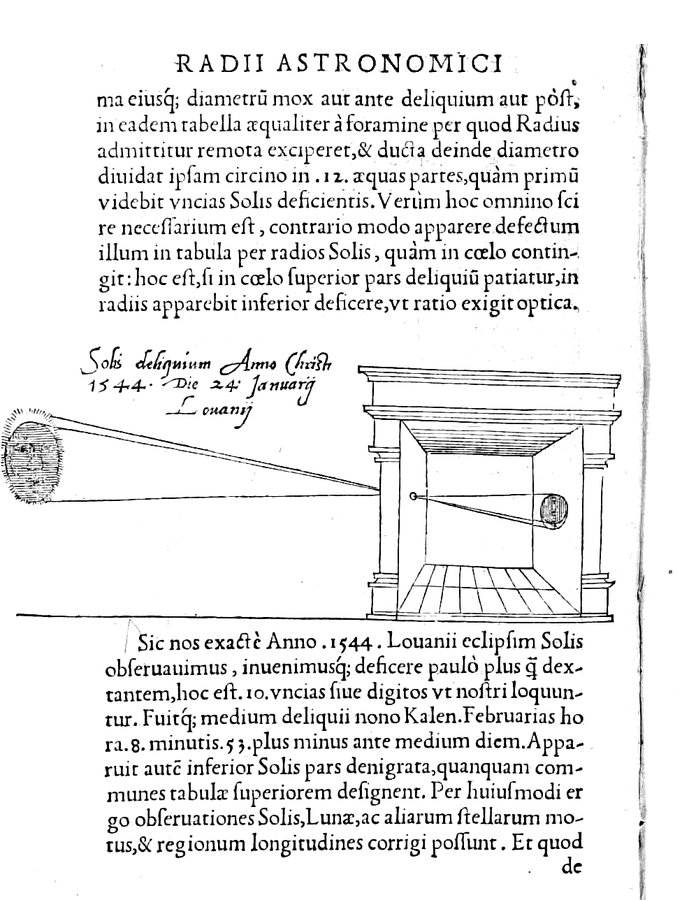 RADII ASTRONOMICI
ma eiusq́; diametrũ mox aut ante deliquium aut pòſt,
in eadem tabella æqualiter à foramine per quod Radius
admittitur remota exciperet,& ducta deinde diametro
diuidat ipſam circino in .12. æquas partes,quàm primũ
videbit vncias Solis deficientis. Verùm hoc omnino ſci
re neceſſarium eſt , contrario modo apparere defectum
illum in tabula per radios Solis , quàm in cœlo contin-
git: hoc eſt,ſi in cœlo ſuperior pars deliquiũ patiatur,in
radiis apparebit inferior deficere,vt ratio exigit optica.
Solis deliquium Anno Chriſti
1544. Die 24 Januarij
Louanij
Sic nos exactè Anno .1544. Louanii eclipſim Solis
obſeruauimus , inuenimusq́; deficere paulò plus q̃ dex-
tantem,hoc eſt. 10. vncias ſiue digitos vt noſtri loquun-
tur. Fuitq́; medium deliquii nono Kalen.Februarias ho
ra.8. minutis.53.plus minus ante medium diem.Appa-
ruit autẽ inferior Solis pars denigrata,quanquam com-
munes tabulæ ſuperiorem deſignent. Per huiuſmodi er
go obſeruationes Solis,Lunæ,ac aliarum ſtellarum mo-
tus,& regionum longitudines corrigi poſſunt . Et quod
de